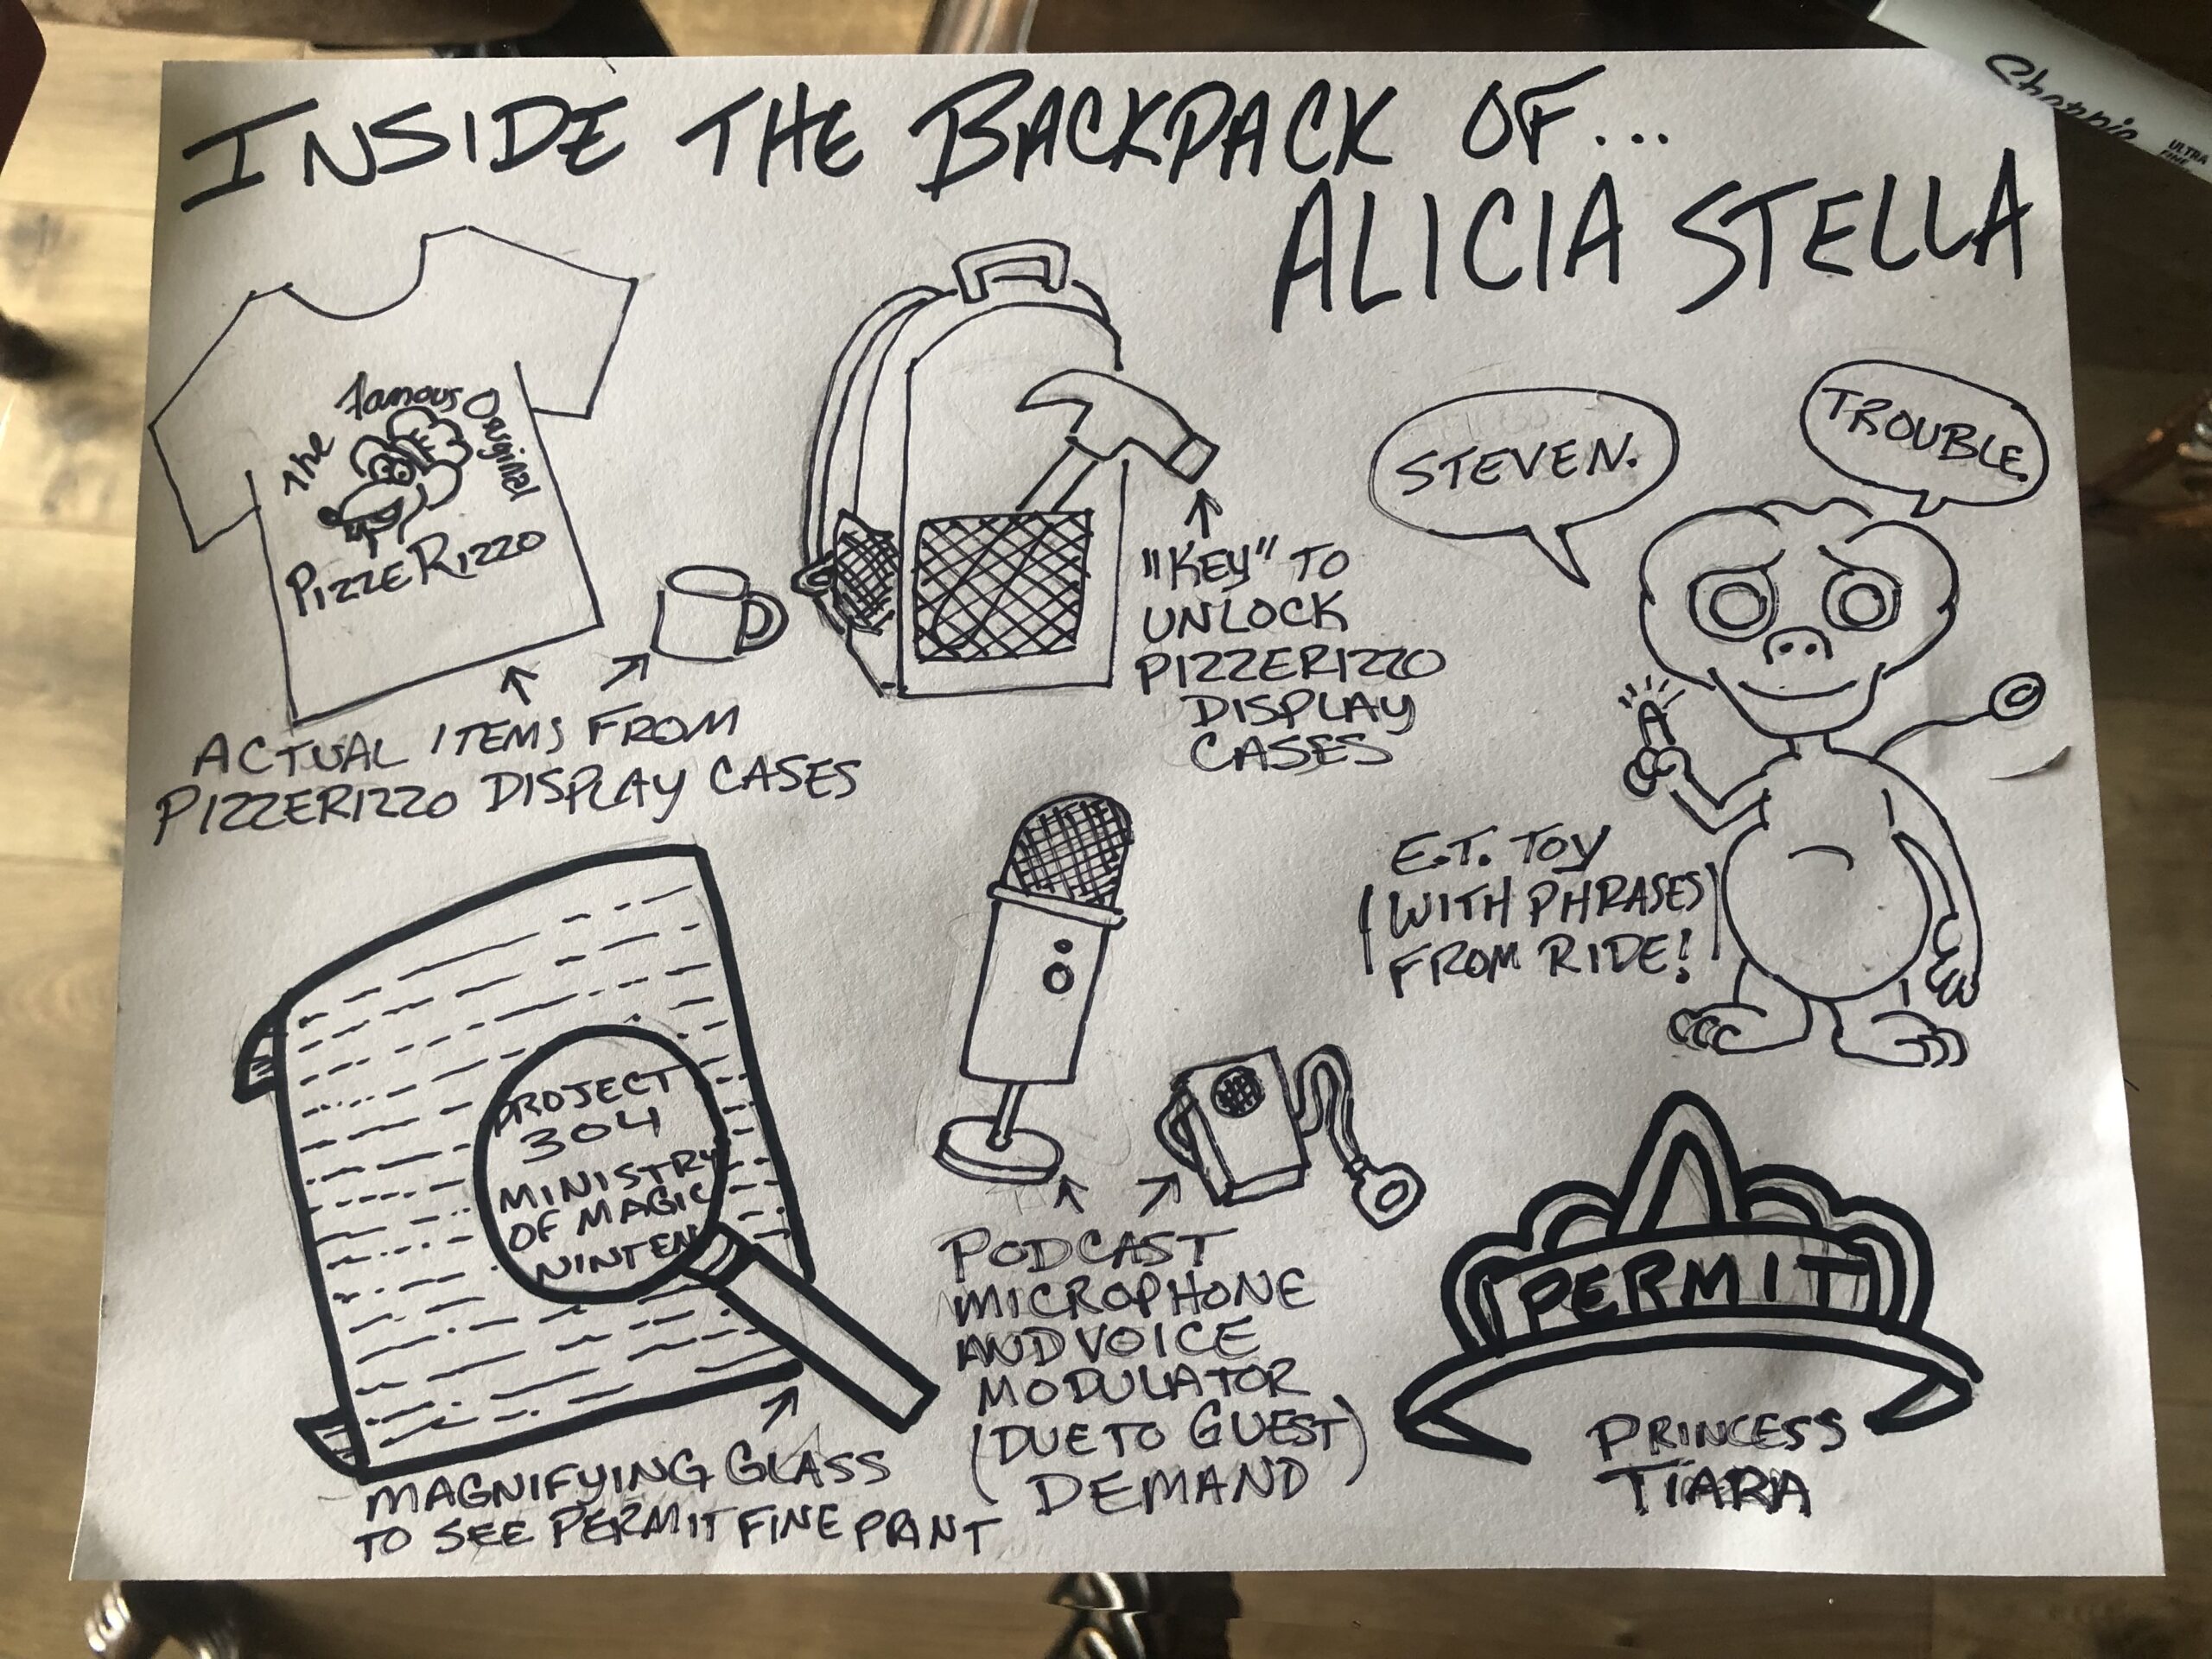 INSIDE THE BACKPACK OF...
ALICIA STELLA
The Famous Original
PIZZERIZZO
ACTUAL ITEMS FROM
PIZZERIZZO DISPLAY CASES
"KEY" TO
UNLOCK
PIZZERIZZO
DISPLAY
CASES
STEVEN.
TROUBLE.
E.T. TOY
(WITH PHRASES
FROM RIDE!)
PROJECT
304
MINISTRY
OF MAGIC
NINTEN
MAGNIFYING GLASS
TO SEE PERMIT FINE PRINT
PODCAST
MICROPHONE
AND VOICE
MODULATOR
(DUE TO GUEST
DEMAND)
PERMIT
PRINCESS
TIARA
Sharpie
ULTRA
FINE